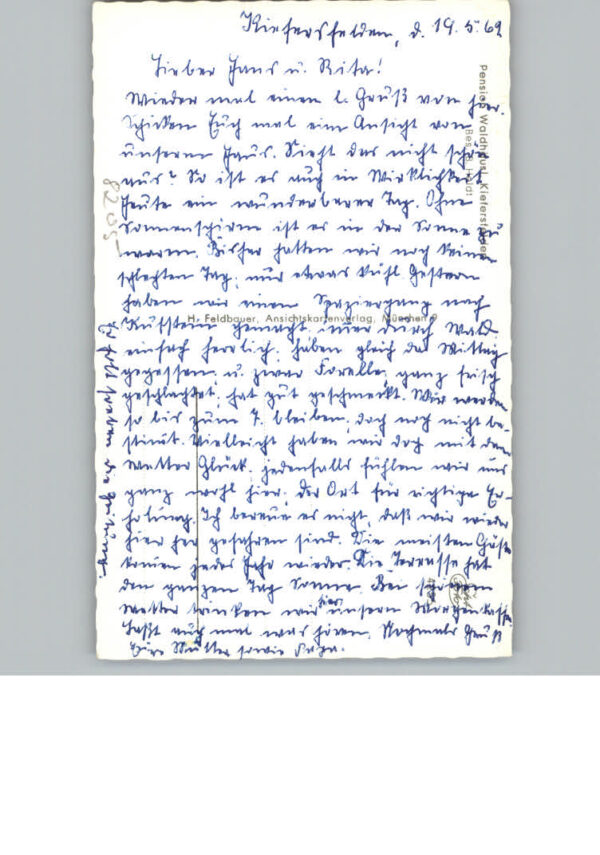 Kiefersfelden, d. 19.5.69
Lieber Hans u. Rita!
Wieder mal einen l. Gruß von hier.
Schicken Euch mal eine Ansicht von
unserem Haus. Sieht das nicht schön
aus? So ist es auch in Wirklichkeit
Heute ein wunderbarer Tag. Ohne
Sonnenschirm ist es in der Sonne zu
warm. Bisher hatten wir noch keinen
schlechten Tag, nur etwas kühl. Gestern
haben wir einen Spaziergang nach
Kufstein gemacht, immer durch Wald
einfach herrlich. haben gleich da Mittag
gegessen, u. zwar Forelle, ganz frisch
geschlachtet, hat gut geschmeckt. Wir werden
so bis zum 7. bleiben, doch noch nicht be-
stimmt. Vielleicht haben wir doch mit dem
Wetter Glück. jedenfalls fühlen wir uns
ganz wohl hier, der Ort für richtige Er-
holung. Ich bereue es nicht, daß wir wieder
hier her gefahren sind. Die meisten Gäste
kommen jedes Jahr wieder. Die Terrasse hat
den ganzen Tag Sonne. Bei schönem
Wetter trinken wir hier unseren Morgenkaffee.
Laßt auch mal was hören. Nochmals Gruß
Eure Mutter sowie Papa.
Pension Waldhaus, Kiefersfelden
Bes.
H. Feldbauer, Ansichtskartenverlag, München 9